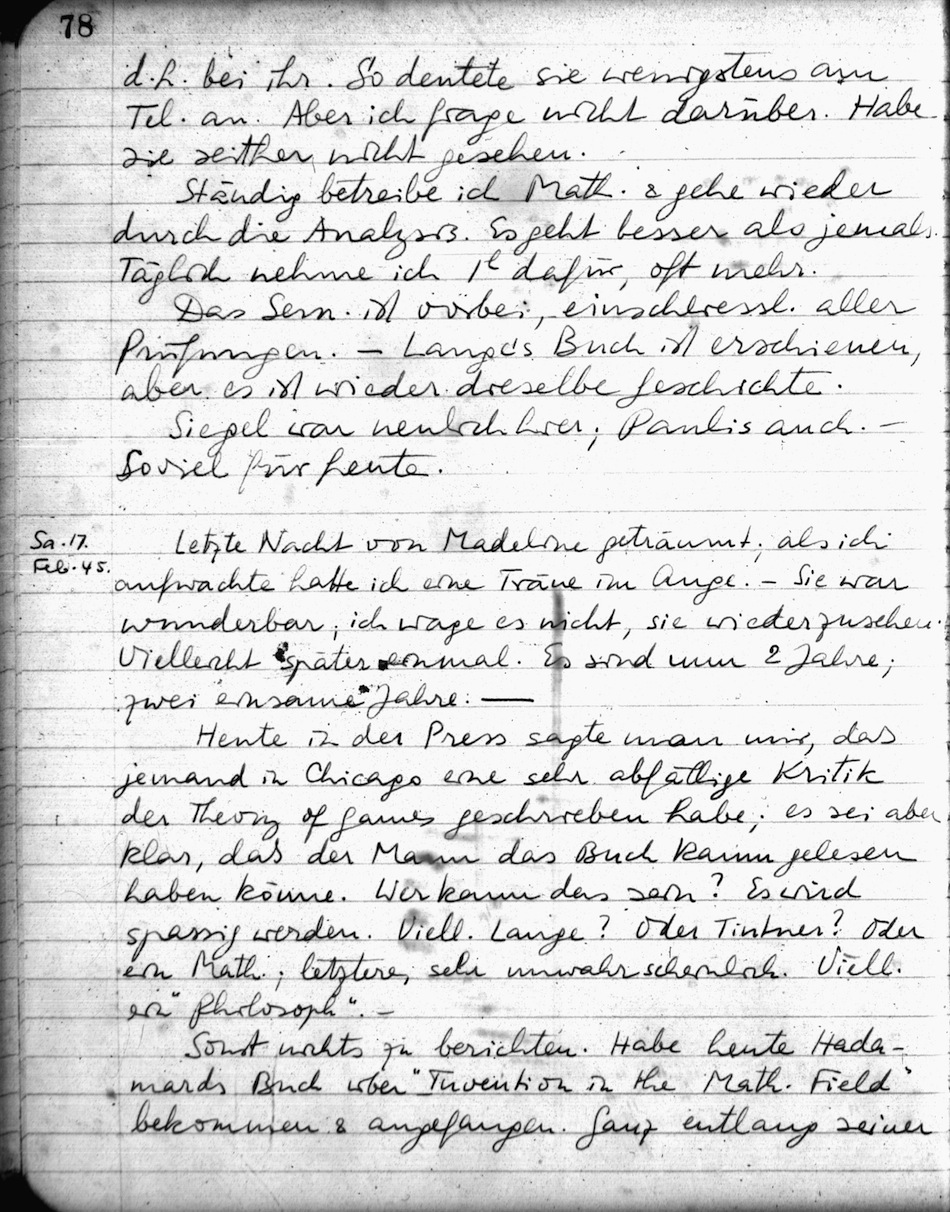 78
d.h. bei ihr. So deutete sie wenigstens am
Tel. an. Aber ich frage nicht darüber. Habe
sie seither nicht gesehen.
Ständig betreibe ich Math. & gehe wieder
durch die Analysis. Es geht besser als jemals.
Täglich nehme ich 1h dafür, oft mehr.
Das Sem. ist vorbei, einschliessl. aller
Prüfungen. – Lange's Buch ist erschienen,
aber es ist wieder dieselbe Geschichte.
Siegel war neulich hier; Paulis auch. –
Soviel für heute.
Sa. 17.
Feb. 45.
Letzte Nacht von Madeline geträumt; als ich
aufwachte hatte ich eine Träne im Auge. – Sie war
wunderbar; ich wage es nicht, sie wiederzusehen.
Vielleicht später einmal. Es sind nun 2 Jahre;
zwei einsame Jahre. —
Heute in der Press sagte man mir, das
jemand in Chicago eine sehr abfällige Kritik
der Theory of Games geschrieben habe; es sei aber
klar, das der Mann das Buch kaum gelesen
haben könne. Wer kann das sein? Es wird
spassig werden. Viell. Lange? Oder Tintner? Oder
ein Math.; letztere, sehr unwahrscheinlich. Viell.
ein "Philosoph". –
Sonst nichts zu berichten. Habe heute Hada-
mards Buch über "Invention in the Math. Field"
bekommen & angefangen. Ganz entlang seiner